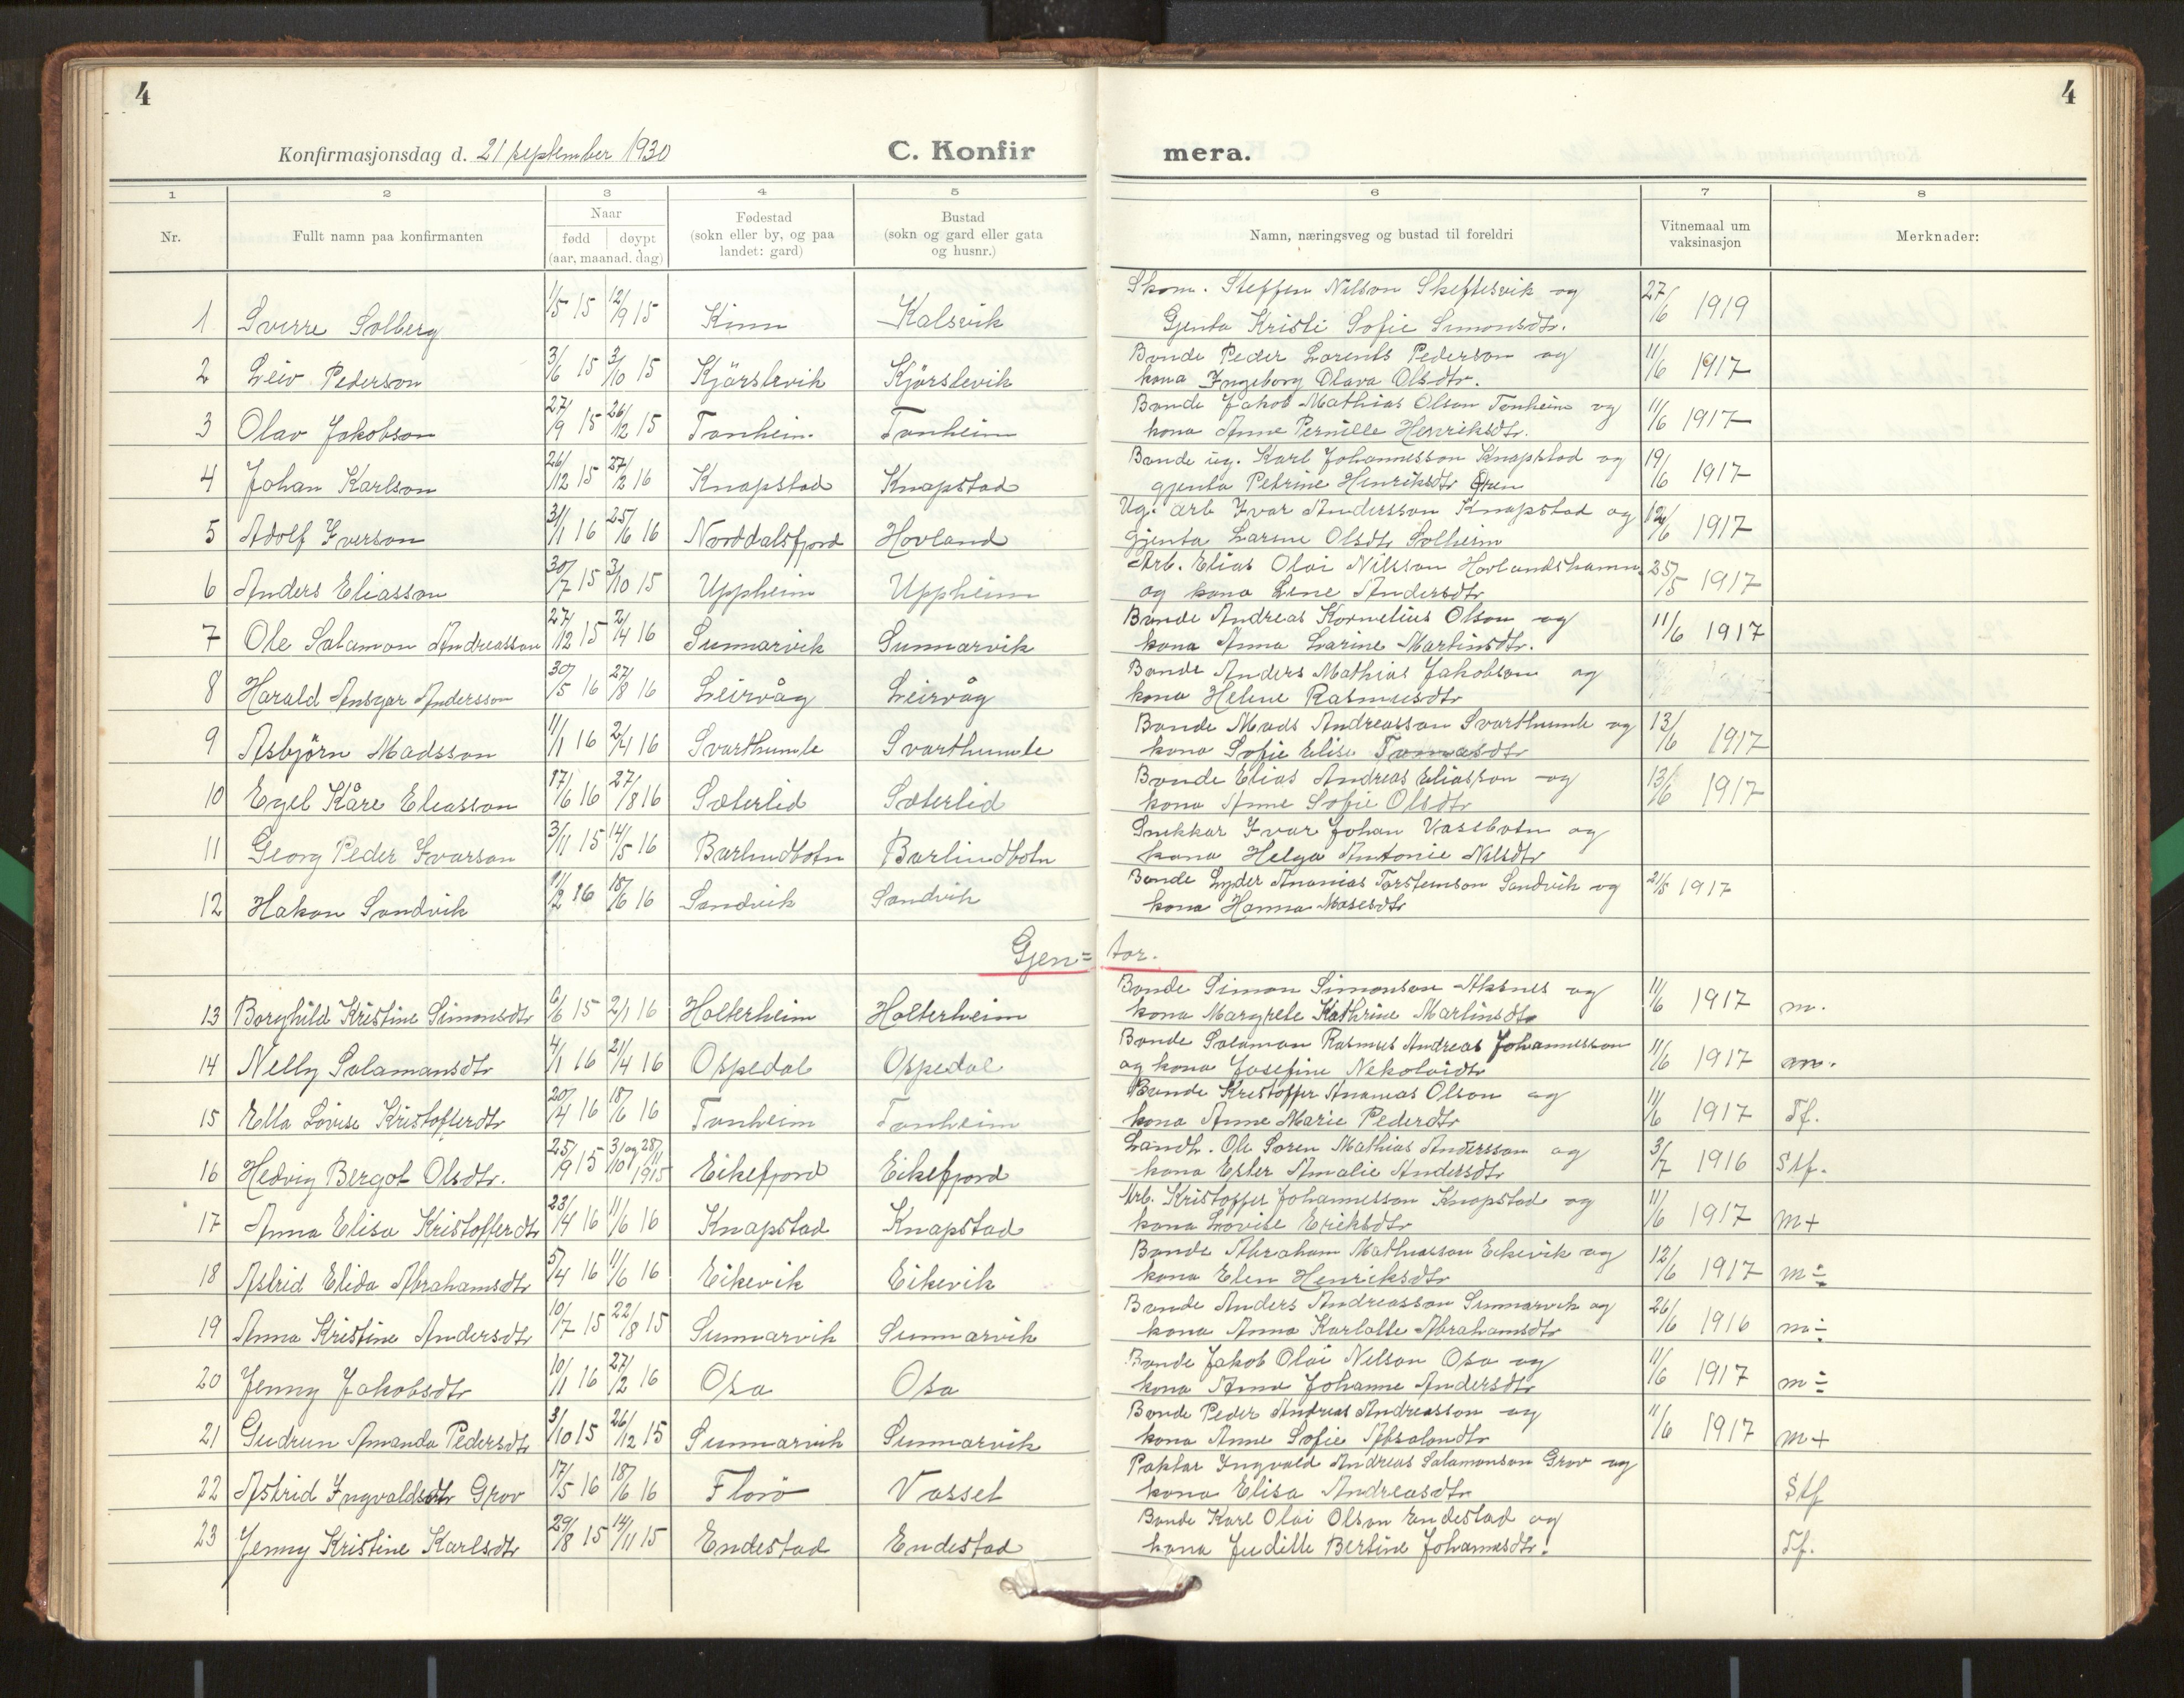 4
4
Konfirmasjonsdag d. 21 september 1930
C. Konfir mera.
1 2 3 4 5 6 7 8
Nr.
Fullt namn paa konfirmanten
Naar
fødd døypt
(aar, maanad. dag)
Fødestad
(sokn eller by, og paa
landet: gard)
Bustad
(sokn og gard eller gata
og husnr.)
Namn, næringsveg og bustad til foreldri
Vitnemaal um
vaksinasjon
Merknader:
1 Sverre Solberg 1/5 15 12/9 15 Kinn Kalsvik Skom. Steffen Nilson Skeftesvik og 27/6 1919
Gjenta Kristi Sofie Simonsdtr.
2 Leiv Pederson 3/6 15 3/10 15 Kjörslevik Kjörslevik Bonde Peder Lorents Pederson og 11/6 1917
kona Ingeborg Olava Olsdtr.
3 Olav Jakobson 27/9 15 26/12 15 Tonheim Tonheim Bonde Jakob Mathias Olson Tonheim og 11/6 1917
kona Anne Pernille Henriksdtr.
4 Johan Karlson 26/12 15 27/2 16 Knapstad Knapstad Bonde ug. Karl Johannesson Knapstad og 19/6 1917
gjenta Petrine Henriksdtr Øren
5 Adolf Iverson 31/1 16 25/6 16 Norddalsfjord Hovland Ug. arb Ivar Andersson Knapstad og 12/6 1917
Gjenta Larine Olsdtr Solheim
6 Anders Eliasson 30/7 15 3/10 15 Uppheim Uppheim Arb. Elias Olai Nilsson Hovlandshamn 25/5 1917
og kona Lene Andersdtr
7 Ole Salamon Andreasson 27/12 15 2/4 16 Sunnarvik Sunnarvik Bonde Andreas Kornelius Olson og 11/6 1917
kona Anna Larine Martinsdtr.
8 Harald Ansgar Andersson 30/5 16 27/8 16 Leirvåg Leirvåg Bonde Anders Mathias Jakobson og
kona Helene Rasmusdtr
9 Asbjörn Madsson 11/1 16 2/4 16 Svarthumle Svarthumle Bonde Mads Andreasson Svarthumle og 13/6 1917
kona Sofie Elise Tomasdtr
10 Egel Kåre Eleasson 17/6 16 27/8 16 Sæterlid Sæterlid Bonde Elias Andreas Eliasson og 13/6 1917
kona Anne Sofie Olsdtr
11 Georg Peder Ivarson 3/11 15 14/5 16 Barlindbotn Barlindbotn Snikkar Ivar Johan Vassbotn og
kona Helga Antonie Nilsdtr
12 Hakon Sandvik 11/2 16 18/6 16 Sandvik Sandvik Bonde Lyder Ananias Torsteinson Sandvik og 21/5 1917
kona Hanna Mosesdtr
Gjen= tor.
13 Borghild Kristine Simonsdtr 6/6 15 2/1 16 Holterheim Holterheim Bonde Simon Simonson Aksnes og 11/6 1917 m.
kona Margrete Kathrine Martinsdtr
14 Nelly Salamansdtr 4/1 16 21/4 16 Ospedal Ospedal Bonde Salamon Rasmus Andreas Johannesson 11/6 1917 m.
og kona Josefine Nekolaidtr
15 Ella Lovise Kristofferdtr 20/4 16 18/6 16 Tonheim Tonheim Bonde Kristoffer Ananias Olson og 11/6 1917 Tf.
kona Anne Marie Pedersdtr
16 Hedvig Bergot Olsdtr. 25/9 15 3/10 og 28/11 1915 Eikefjord Eikefjord Landh. Ole Soren Mathias Andersson og 3/7 1916 Stf.
kona Ester Amalie Andersdtr
17 Anna Elisa Kristofferdtr 23/4 16 11/6 16 Knapstad Knapstad Arb. Kristoffer Johannesson Knapstad og 11/6 1917 m+
kona Lovise Eriksdtr
18 Astrid Elida Abrahamsdtr 5/4 16 11/6 16 Eikevik Eikevik Bonde Abraham Mathiasson Eikevik og 12/6 1917 m÷
kona Elen Henriksdtr
19 Anna Kristine Andersdtr 10/7 15 22/8 15 Sunnarvik Sunnarvik Bonde Anders Andreasson Sunnarvik og 26/6 1916 m÷
kona Anna Karlotte Abrahamsdtr
20 Jenny Jakobsdtr 10/1 16 27/2 16 Osa Osa Bonde Jakob Olai Nelson Osa og 11/6 1917 m÷
kona Anna Johanne Andersdtr
21 Gudrun Amanda Pedersdtr 3/10 15 26/12 15 Sunnarvik Sunnarvik Bonde Peder Andreas Andreasson og 11/6 1917 m+
kona Anne Sofie Absalondtr
22 Astrid Ingvaldsdtr Grov 17/5 16 18/6 16 Florö Vasset Paktar Ingvald Andreas Salamonson Grov og Stf
kona Elisa Andreasdtr
23 Jenny Kristine Karlsdtr 29/8 15 14/11 15 Endestad Endestad Bonde Karl Olai Olson Endestad og Tf.
kona Juditte Bertine Johannesdtr.